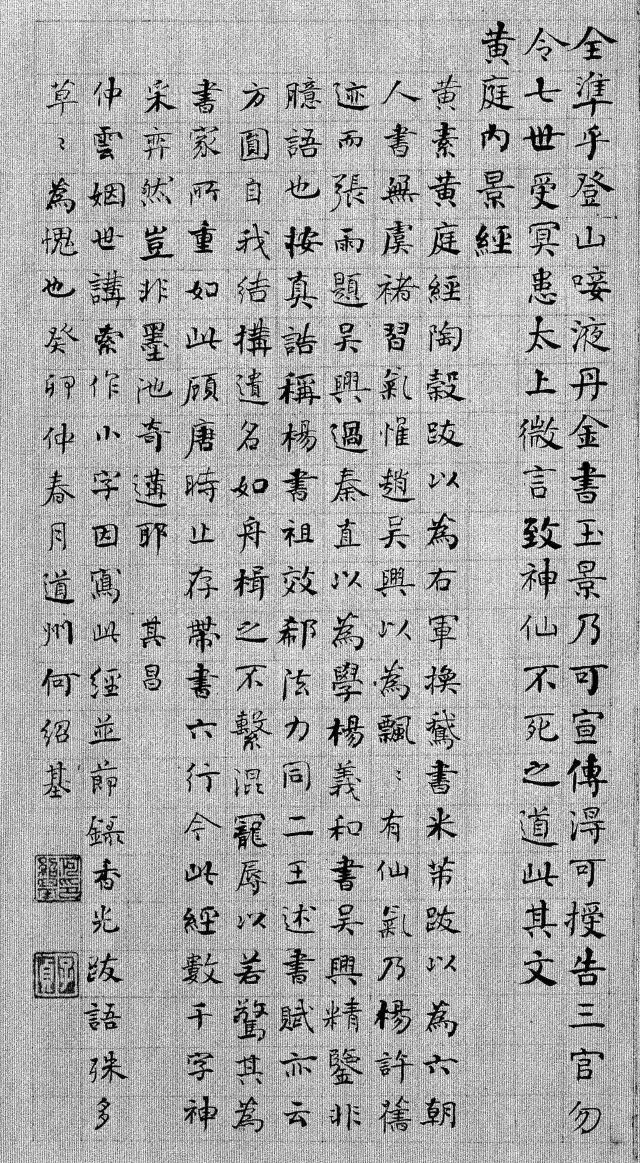 全準乎登山唼液丹金書玉景乃可宣傳得可授告三官勿
令七世受冥患太上微言致神仙不死之道此其文
黄庭内景經
黄素黄庭經陶穀跋以為右軍換鵞書米芾跋以為六朝
人書無虞褚習氣惟趙吳興以為飄〻有仙氣乃楊許舊
迹而張雨題吳興過秦直以為學楊義和書吳興精鑒非
臆語也按真誥稱楊書祖效郗法力同二王述書賦亦云
方圓自我結構遺名如舟楫之不繫混寵辱以若驚其為
書家所重如此顧唐時止存帶書六行今此經數千字神
采弈然豈非墨池奇遘耶 其昌
仲雲姻世講索作小字因寫此經並節錄香光跋語殊多
草〻為愧也癸卯仲春月道州何紹基
何紹基印
子貞